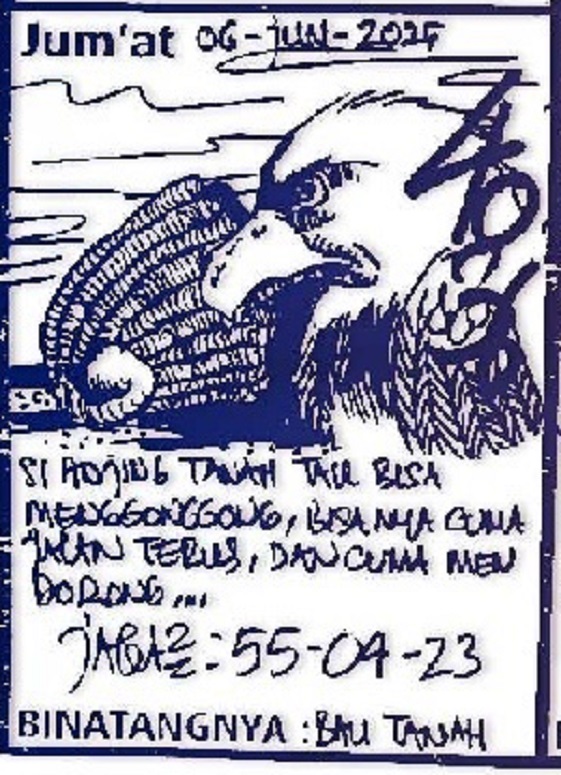 Jum'at 06-JUN-2025
SI ANJING TANAH TAK BISA
MENGGONGGONG, BISANYA CUMA
JALAN TERUS, DAN CUMA MEN
DORONG...
JAGA2: 55-04-23
BINATANGNYA : BAU TANAH